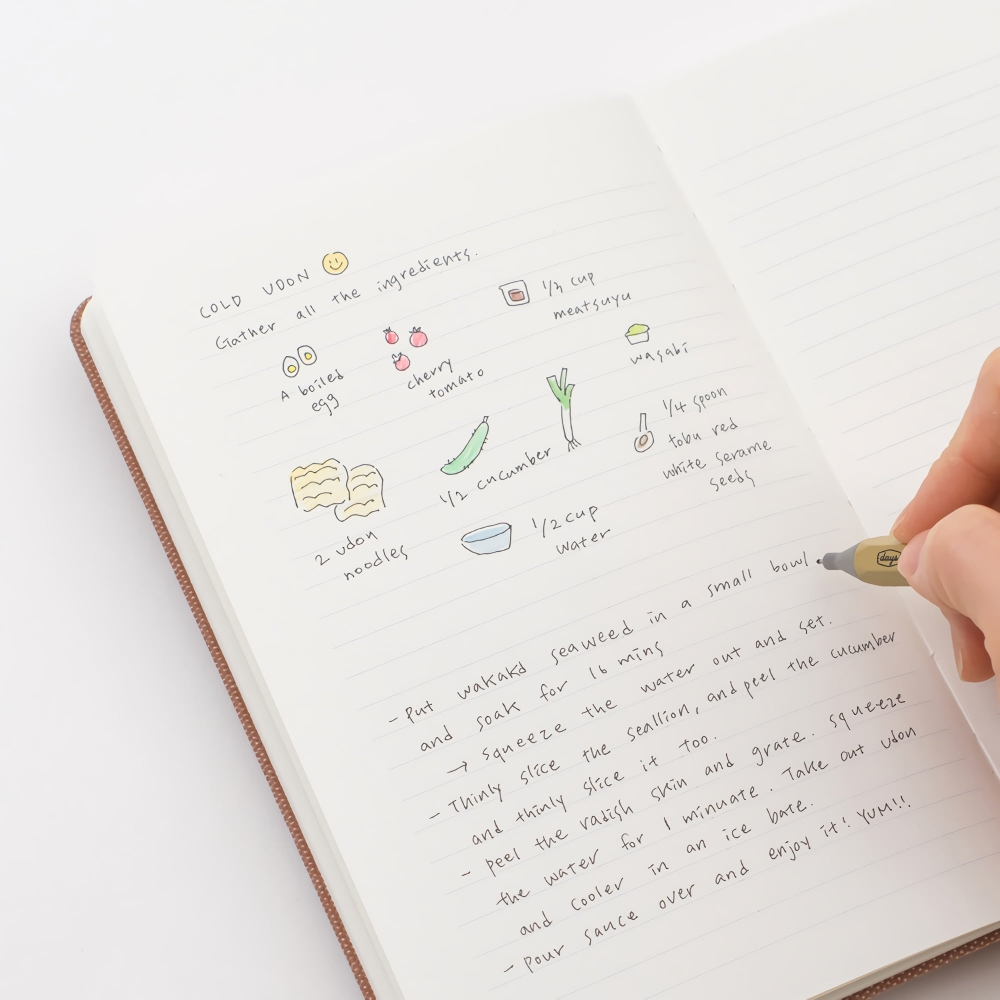 COLD UDON
Gather all the ingredients.
1/2 cup
meatsuyu
A boiled
egg
cherry
tomato
wasabi
1/4 spoon
tobu red
white serame
seeds
1/2 cucumber
2 udon
noodles
1/2 cup
water
- Put wakakd seaweed in a small bowl
and soak for 16 mins
→ squeeze the water out and set.
- Thinly slice the seallion, and peel the cucumber
and thinly slice it too.
- peel the radish skin and grate. squeeze
the water for 1 minuate. Take out udon
and cooler in an ice bate.
- pour sauce over and enjoy it! YUM!!
days